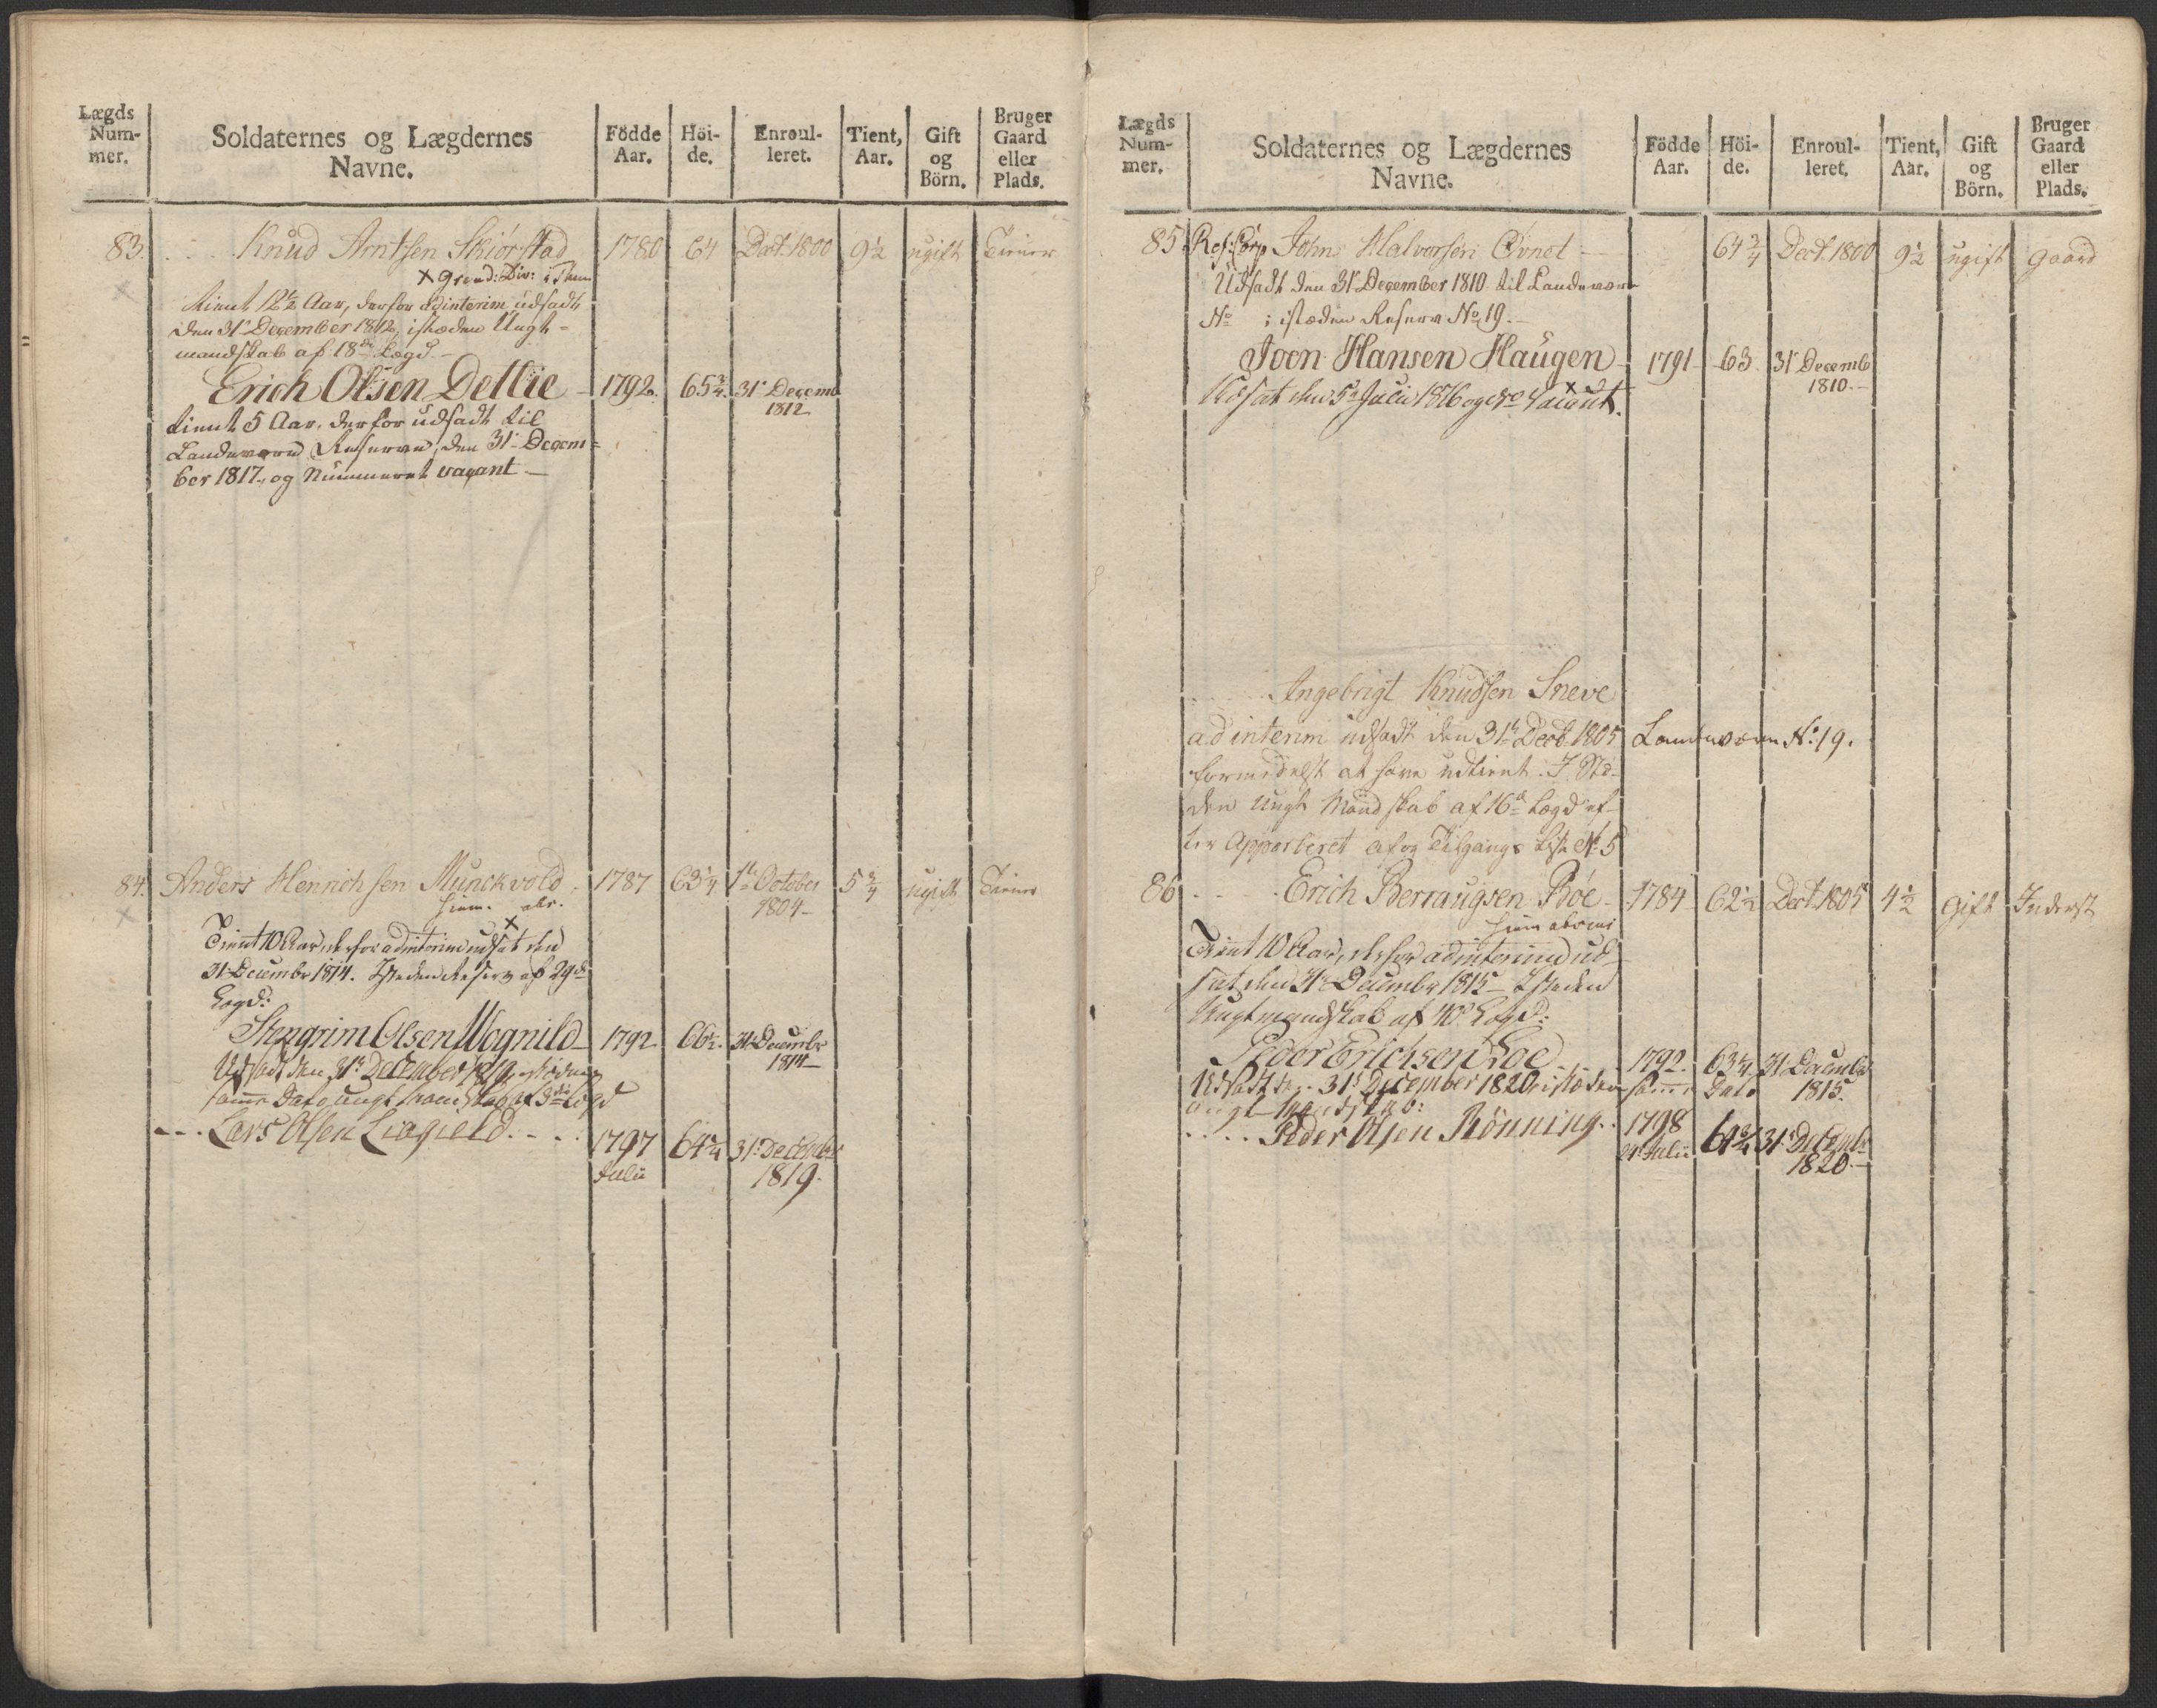 Lægds Num- mer.
Soldaternes og Lægdernes Navne.
Födde Aar.
Höi- de.
Enroul- leret.
Tient, Aar.
Gift og Börn.
Bruger Gaard eller Plads.
83. Knud Arntsen Skiörstad 1780 64 Dect. 1800 9½ ugift Tiener
tient 12½ Aar, derfor ad interim udsadt
den 31te December 1812, istæden Ungt-
mandskab af 18de Lægd
Erich Olsen Dellie 1792. 65¾. 31te Decemb
1812
tient 5 Aar, derfor udsadt til
Landeværns Reserven, den 31te Decem=
ber 1817, og Nummeret vacant
84. Anders Henrichsen Munckvold 1787 63¼ 1te October 5¾ ugift Tiener
1804
Tient 10 Aar, derfor ad interim udsat den
31te Decembr 1814. Isteden Reserv af 29de
Lægd:
Stengrim Olsen Wognild 1792 66½. 31te Decembr
1814
Udsadt den 31te December 1819, isteden
samme Dato ungt Mandskab af 3die Lægd
Lars Olsen Liagield 1797 64¾ 31te December
Julii 1819.
Lægds Num- mer.
Soldaternes og Lægdernes Navne.
Födde Aar.
Höi- de.
Enroul- leret.
Tient, Aar.
Gift og Börn.
Bruger Gaard eller Plads.
85 Ref: Corp John Halvorsen Övnet 64¾ Dect. 1800 9½ ugift gaard
Udsadt den 31te December 1810 til Landeværn
No ; istæden Reserv No 19.
Joen Hansen Haugen 1791 63 31te Decemb
1810.
Udsat den 5te Julii 1816 og No Vacant.
Ingebrigt Knudsen Sneve
ad interim udsadt den 31te Decb. 1805 Landeværn No 19.
formedelst at have udtient. I Stæ-
den Ungt Mandskab af 16de Lægd ef-
ter Apporteret af og Tilgangs Liste No 5
86 Erich Berraugsen Böe 1784 62½ Dect. 1805 4½ gift Inderst
Tient 10 Aar, derfor ad interim ud-
sat den 31te Decembr 1815 Isteden
Ungtmandskab af 40de Lægd:
Peder Erichsen Loe 1792. 63¼ 31 Decembr
Udsadt den 31te December 1820 istæden samme Dato 1815.
ungt Mandskab:
Peder Olsen Rönning 1798 61¾ 31te Decembr
21 Julii 1820.